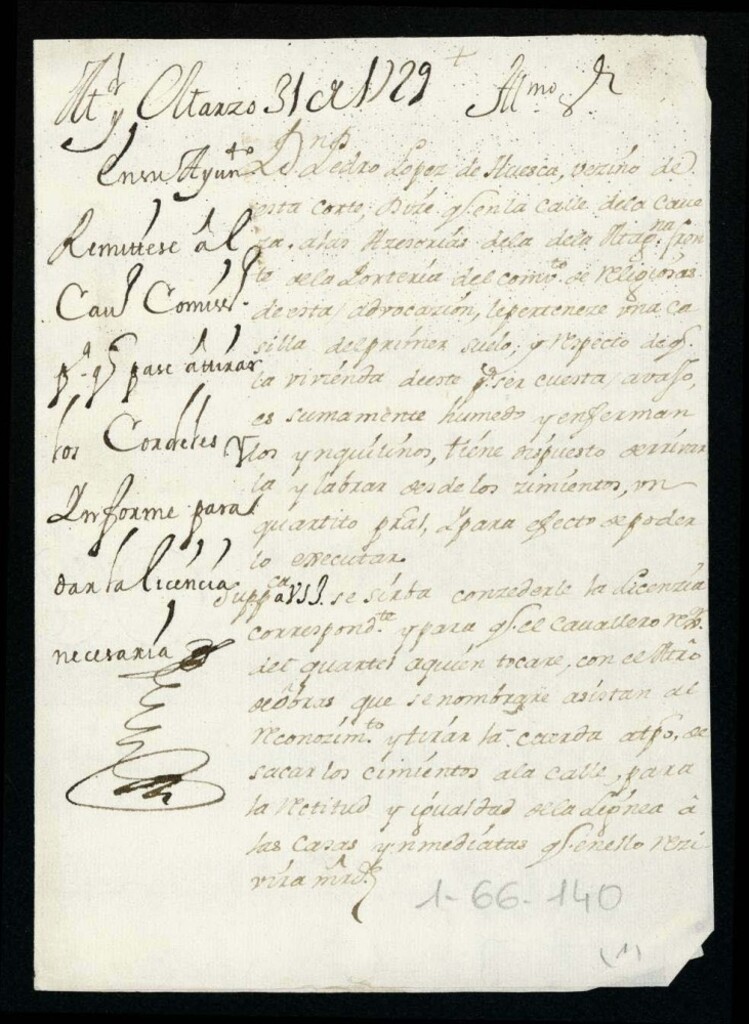 Md. y Marzo 31 de 1729
+
Illmo Sr
En su Ayunto
Remitese âl
Cavº Comisº
pª. q̃ pase âtirar
los Cordeles y
Ynforme para
dar la licencia
necesaria
Dn Pedro Lopez de Huesca, vezino de
esta corte, Dize q̃. en la calle dela Cave
za. a las Accesorias dela dela Magna fron
te dela Porteria del convto de religiosas
de esta advocazion, le perteneze una ca
silla del primer suelo; y respecto de q̃.
la vivienda de este pr ser cuesta avajo,
es sumamente humedo y enferman
los ynquilinos, tiene dispuesto derrivar
la y labrar desde los zimientos, un
quartito pral, y para efecto de poder
lo executar
Suppca a VSI. se sirba conzederle la Licenzia
correspondte. y para q̃. el cavallero rexor.
del quartel aquien tocare, con el Mro
de Obras que se nombrare asistan al
reconozimto. y tirar la cuerda al tpo. de
sacar los cimientos ala calle, para
la rectitud y igualdad dela Lignea â
las casas ynmediatas q̃. en ello rezi
vira mrd.
1-66-140
(1)